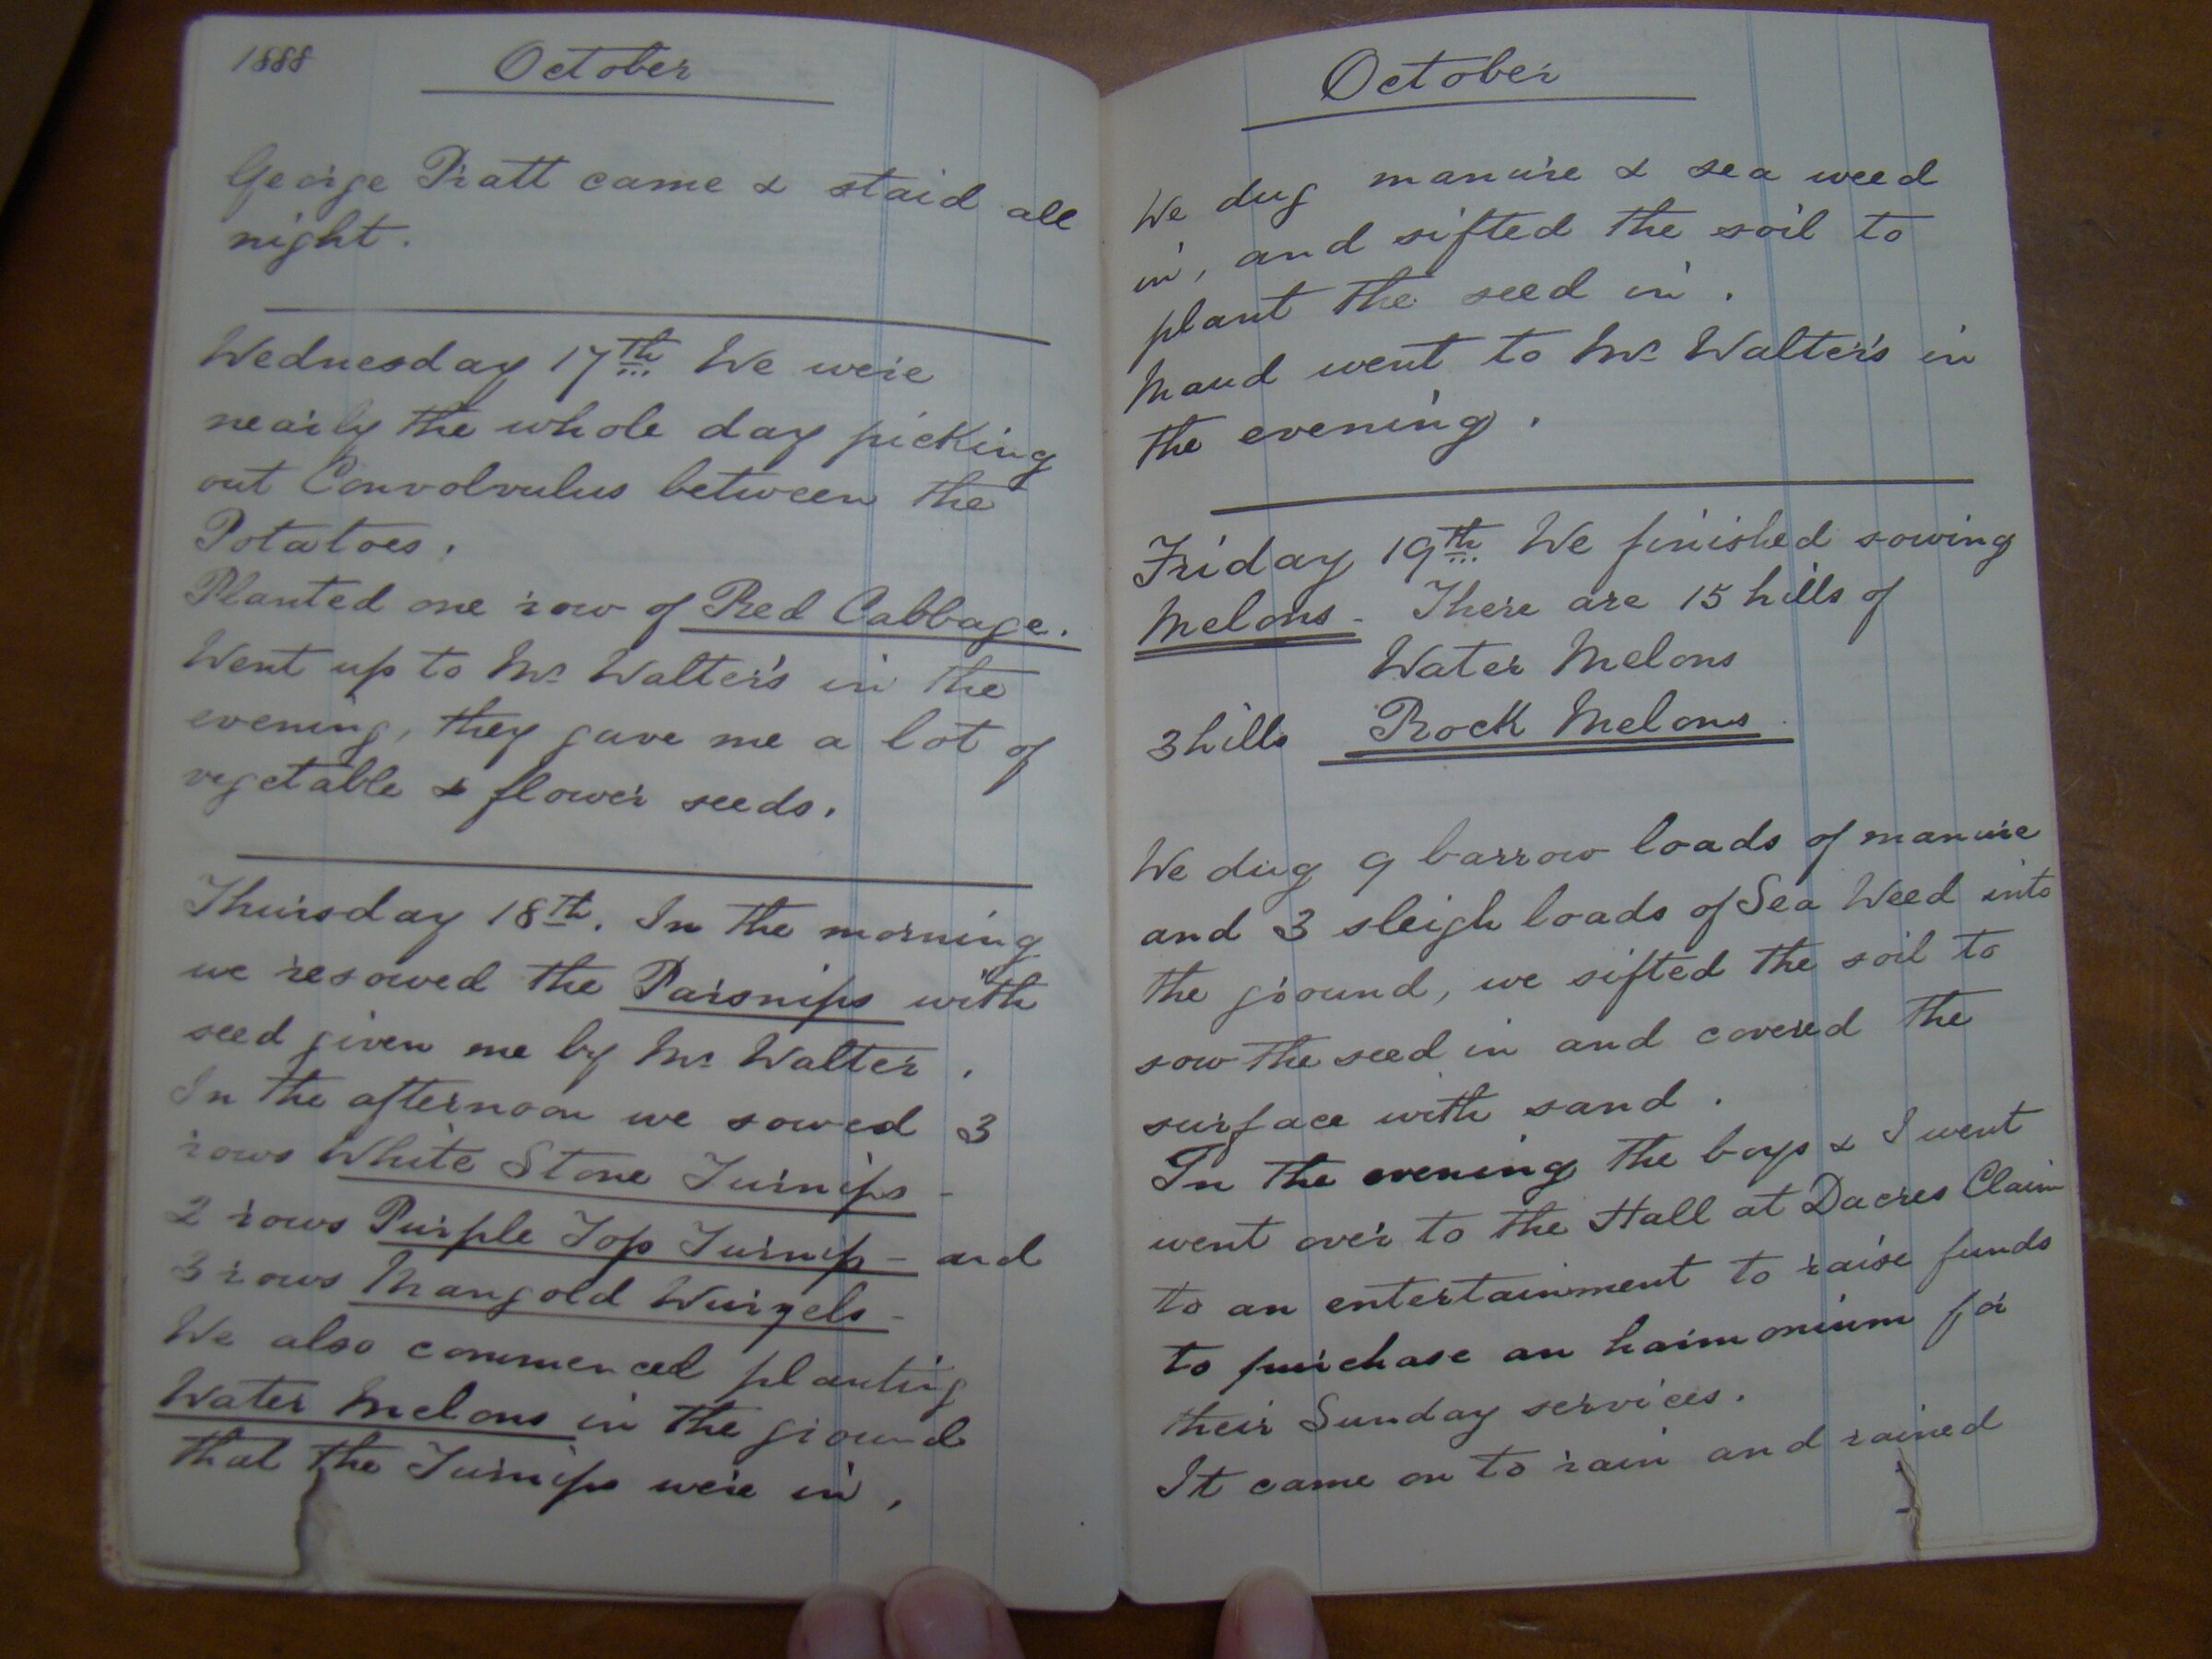 1888 October
George Pratt came & staid all
night.
Wednesday 17th We were
nearly the whole day picking
out Convolvulus between the
Potatoes.
Planted one row of Red Cabbage.
Went up to Mr Walter's in the
evening, they gave me a lot of
vegetable & flower seeds.
Thursday 18th. In the morning
we resowed the Parsnips with
seed given me by Mr Walter.
In the afternoon we sowed 3
rows White Stone Turnips -
2 rows Purple Top Turnip - and
3 rows Mangold Wurzels -
We also commenced planting
Water Melons in the ground
that the Turnips were in.
October
We dug manure & sea weed
in, and sifted the soil to
plant the seed in.
Maud went to Mr Walter's in
the evening.
Friday 19th We finished sowing
Melons - There are 15 hills of
Water Melons
3 hills Rock Melons
We dug 9 barrow loads of manure
and 3 sleigh loads of Sea Weed into
the ground, we sifted the soil to
sow the seed in and covered the
surface with sand.
In the evening the boys & I went
went over to the Hall at Dacres Claim
to an entertainment to raise funds
to purchase an harmonium for
their Sunday services.
It came on to rain and rained